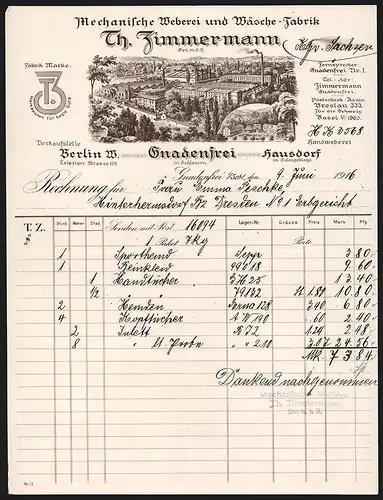 Mechanische Weberei und Wäsche-Fabrik
Th. Zimmermann
Ges. m. b. H.
Kgr. Sachsen
Fabrik Marke.
Fernsprecher:
Gnadenfrei Nr. 1.
Tel.-Adr.
Zimmermann
Gnadenfrei.
Postscheck-Konto
Breslau 333.
Für die Schweiz:
Basel V/1960.
H K 3568
Verkaufstelle
Berlin W.
Leipziger Strasse 105
Gnadenfrei
in Schlesien.
Handweberei
Hausdorf
im Eulengebirge.
Gnadenfrei i/Schl. den 9. Juni 1916
Rechnung für Frau Emma Peschke,
Hinterhermsdorf Bz Dresden No 81 Erbgericht
T. Z. Stück Meter Senden mit Post 16094 Lager-Nr. Grösse Preis Mark Pfg.
1 Paket 7 kg Porto
1 Sporthemd Sepp 3 80
1 Beinkleid 49018 9 60
1 Handtücher 3H 25 13 40
1/2 " 79132 St 1.80 10 80
2 Hemden 128 3 40 6 80
4 Kopftücher A W 190 60 2 40
2 Inlett R 72 1 24 2 48
8 " " 210 3.07 24 56
Mk. 73 84
Dankend nachgenommen
Mechanische Weberei
Th. Zimmermann
Ges. m. b. H.